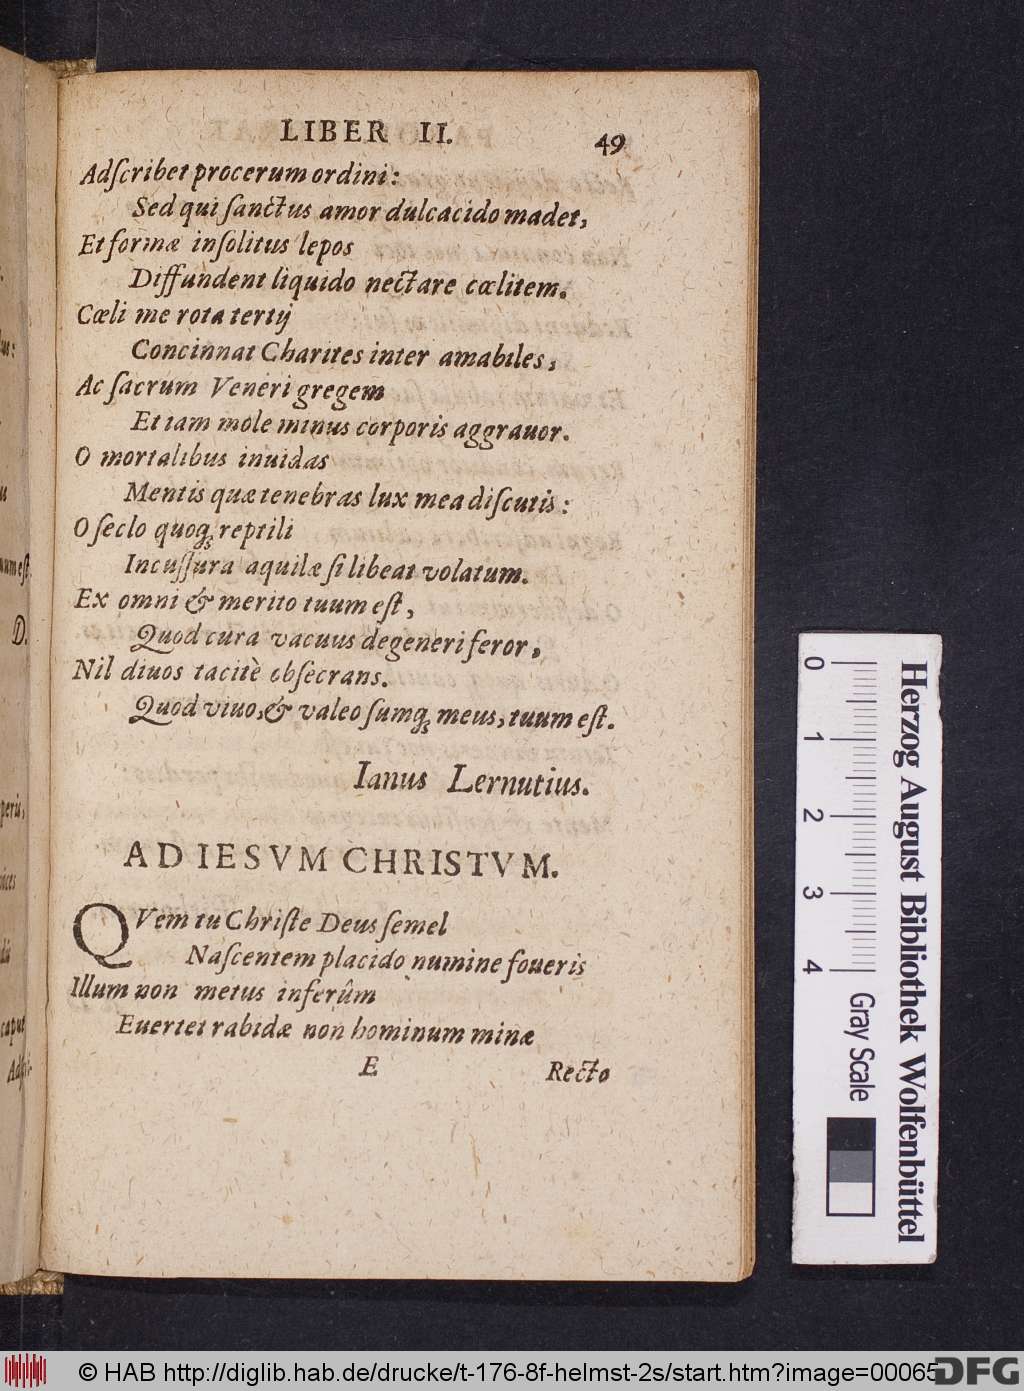 LIBER II. 49
Adſcribet procerum ordini:
Sed qui ſanctus amor dulcacido madet,
Et formæ inſolitus lepos
Diffundent liquido nectare cœlitem.
Cœli me rota tertij
Concinnat Charites inter amabiles,
Ac ſacrum Veneri gregem
Et iam mole minus corporis aggrauor.
O mortalibus inuidas
Mentis quæ tenebras lux mea diſcutis:
O ſeclo quoq; reptili
Incuſſura aquilæ ſi libeat volatum.
Ex omni & merito tuum eſt,
Quod cura vacuus degeneri feror,
Nil diuos tacitè obſecrans.
Quod viuo, & valeo ſumq; meus, tuum eſt.
Ianus Lernutius.
AD IESVM CHRISTVM.
QVem tu Chriſte Deus ſemel
Naſcentem placido numine foueris
Illum non metus inferûm
Euertet rabidæ non hominum minæ
E Recto
us:
u
uum eſt
D.
peris,
caput
0 1 2 3 4 Gray Scale
Herzog August Bibliothek Wolfenbüttel
© HAB http://diglib.hab.de/drucke/t-176-8f-helmst-2s/start.htm?image=00065
DFG